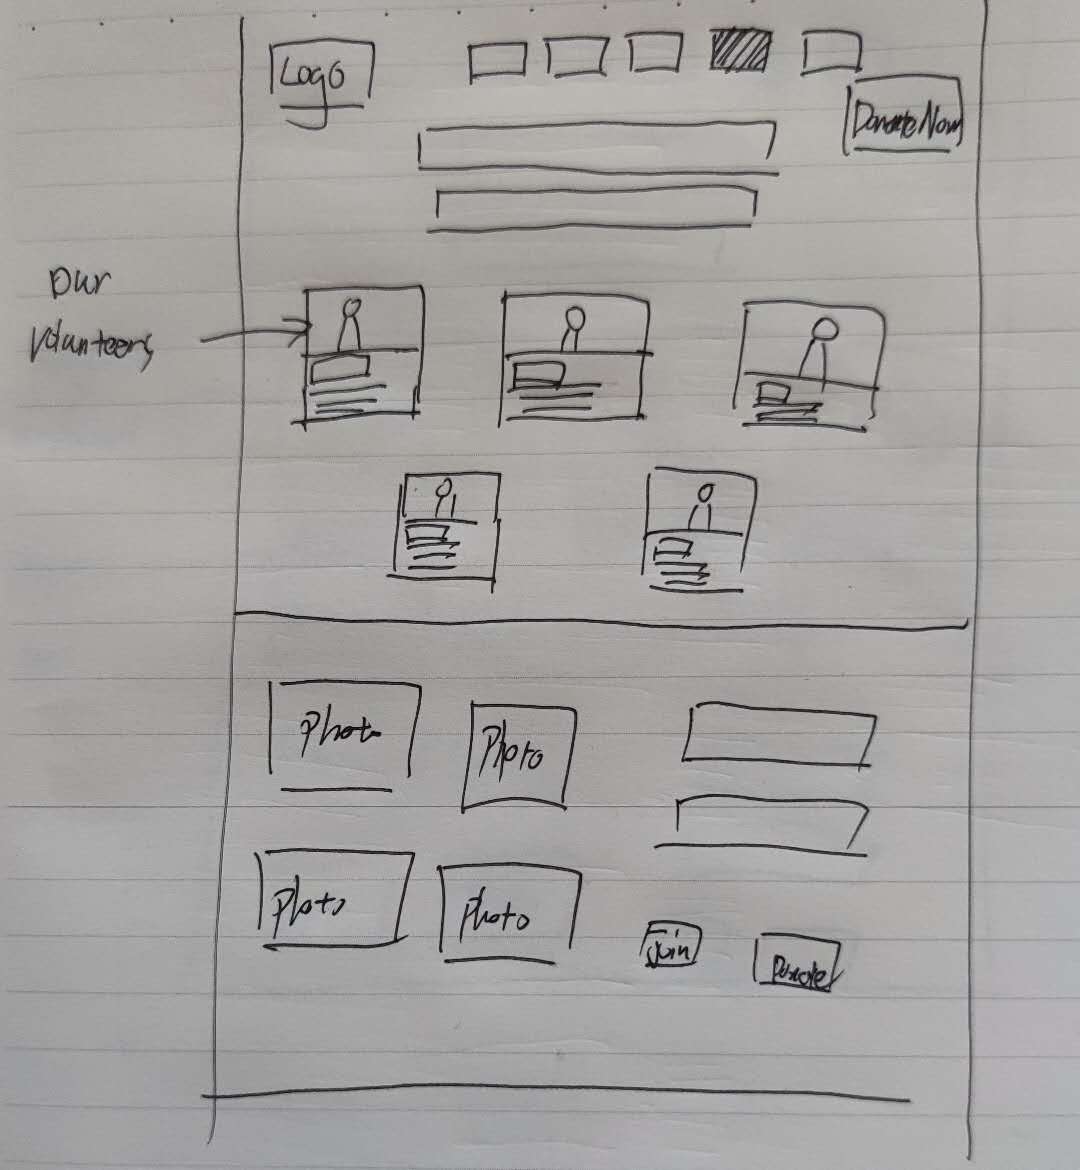 Logo
Donate Now
Our
Volunteers
Photo
Photo
Photo
Photo
Join
Donate